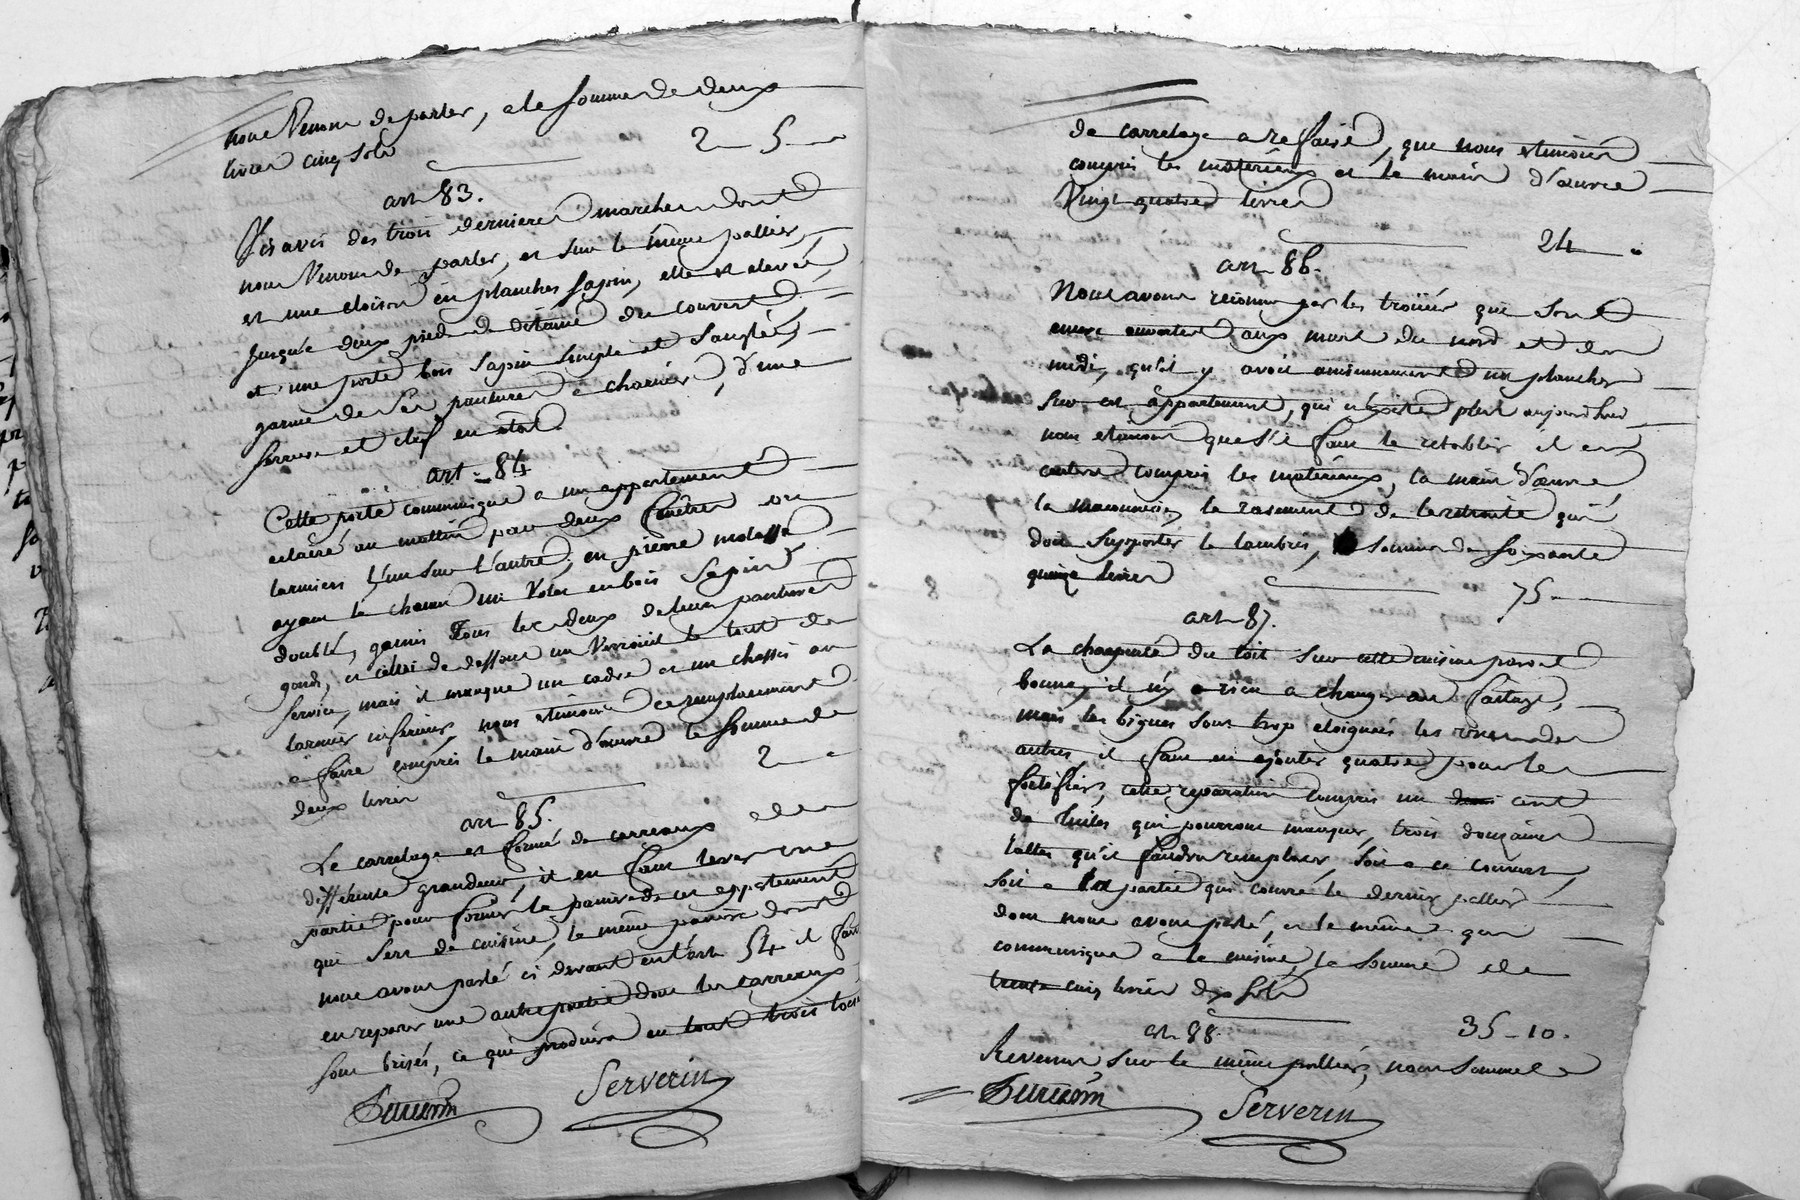 nous Venons de parler, a la somme de deux
livres cinq sols 2 5
art 83.
Vis avis des trois dernieres marches dont
nous Venons de parler, et sur le même pallier,
est une cloison en planches sapin, elle est elevée
jusqu'a deux pieds de distance du couvert
et une porte bois sapin simple et
garnie de ses pantures a charnier, d'une
serrure et clef en etat.
art 84
Cette porte communique a un appartement
eclairé au mattin par deux fenêtres ou
larmiers l'un sur l'autre, en pierre molasse
ayant le chacun un Volet en bois sapin
doublé, garnis tous les deux de leurs pantures
gonds, et celui de dessous un Verrouil le tout de
service, mais il manque un cadre et un chassis au
larmier inferieur, nous estimons ce remplacement
a faire compris la main d'œuvre la somme de
deux livres 2
art 85.
Le carrelage est formé de carreaux de
differente grandeur, il en faut lever une
partie pour former le panier de cet appartement
qui sert de cuisine, le même panier dont
nous avons parlé ci devant en l'art 54 il faut
en reparer une autre partie dont les carreaux
sont brisés, ce qui produira en tout trois toises
Serverin
de carrelage a refaire, que nous estimons
compris les materiaux et la main d'œuvre
Vingt quatre livres
24
art 86.
Nous avons reconnu par les troüés qui sont
encore ouvertes aux murs du nord et du
midi, qu'il y avoit anciennement un plancher
sur cet appartement, qui n'existe plus aujourd'hui
nous estimons que s'il faut le retablir il en
coutera compris les materiaux, la main d'œuvre
la maconnerie, le rasement de la retraite qui
doit supporter le lambris, la somme de soixante
quinze livres 75
art 87.
La charpente du toit sur cette cuisine paroit
bonne, il n'y a rien a changer au faitage,
mais les bigues sont trop eloignées les unes des
autres, il faut en ajouter quatre pour les
fortifier, cette reparation compris un cent
de tuiles qui pourront manquer, trois douzaines
lattes qu'il faudra remplacer, soit a ce couvert,
soit a la partie qui couvre le dernier pallier
dont nous avons parlé, et le même qui
communique a la cuisine, la somme de
trente cinq livres dix sols
35 - 10.
art 88.
Revenus sur le même pallier, nous sommes
Serverin